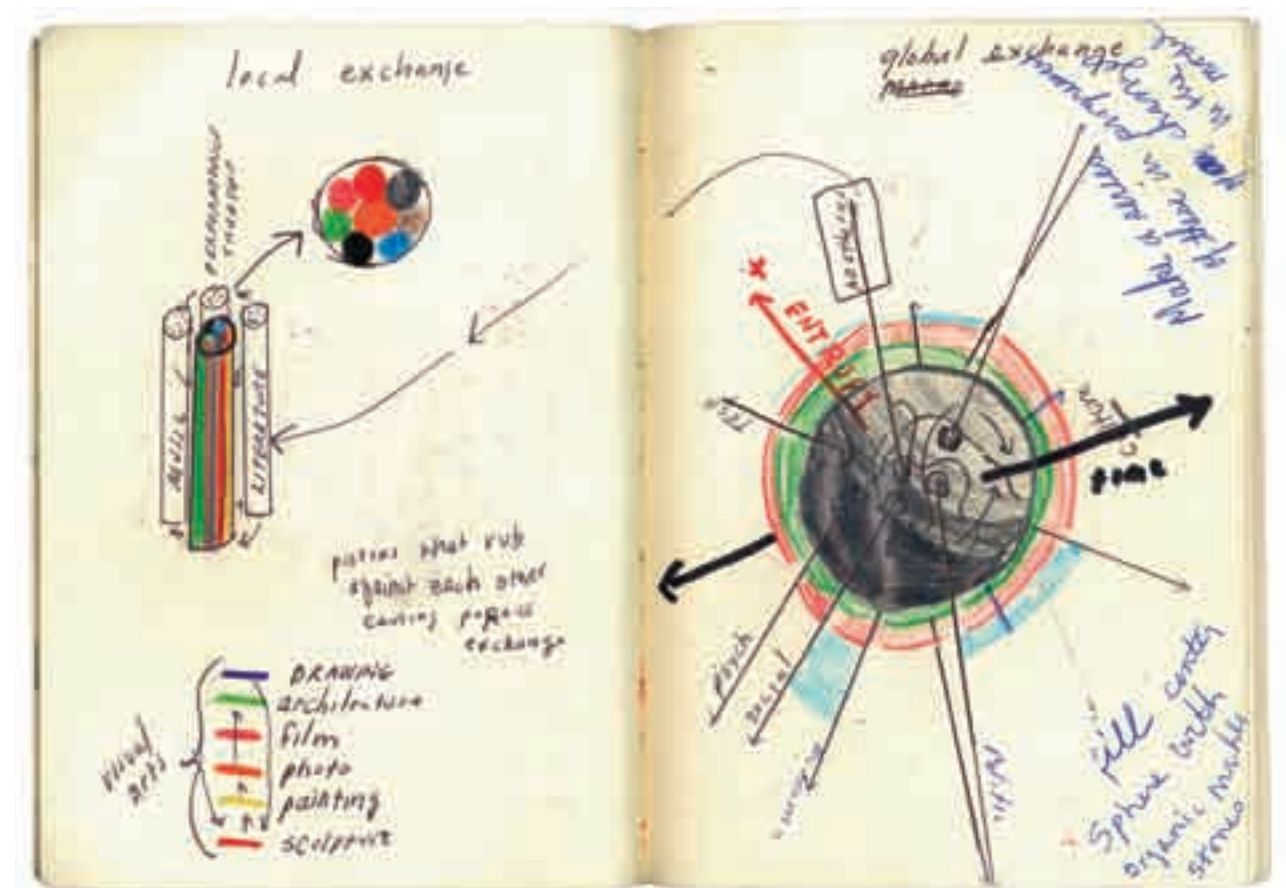 local exchange
PERFORMANCE
THEATER
MUSIC
LITERATURE
that rub
against each other
causing
exchange
visual
arts
DRAWING
architecture
film
photo
painting
sculpture
global exchange
Make a series
of these in
change
in the
model
ENTROPY
time
psych
social
economic
fill center
Sphere with
organic
stones